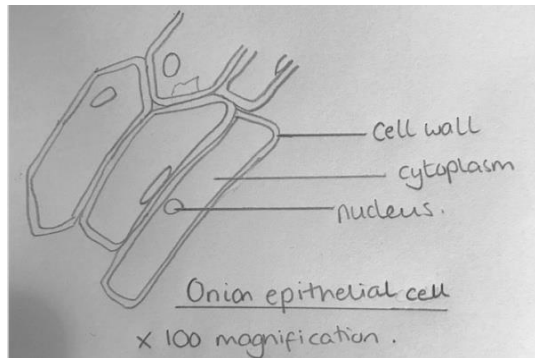 Cell wall
cytoplasm
nucleus.
Onion epithelial cell
x 100 magnification.